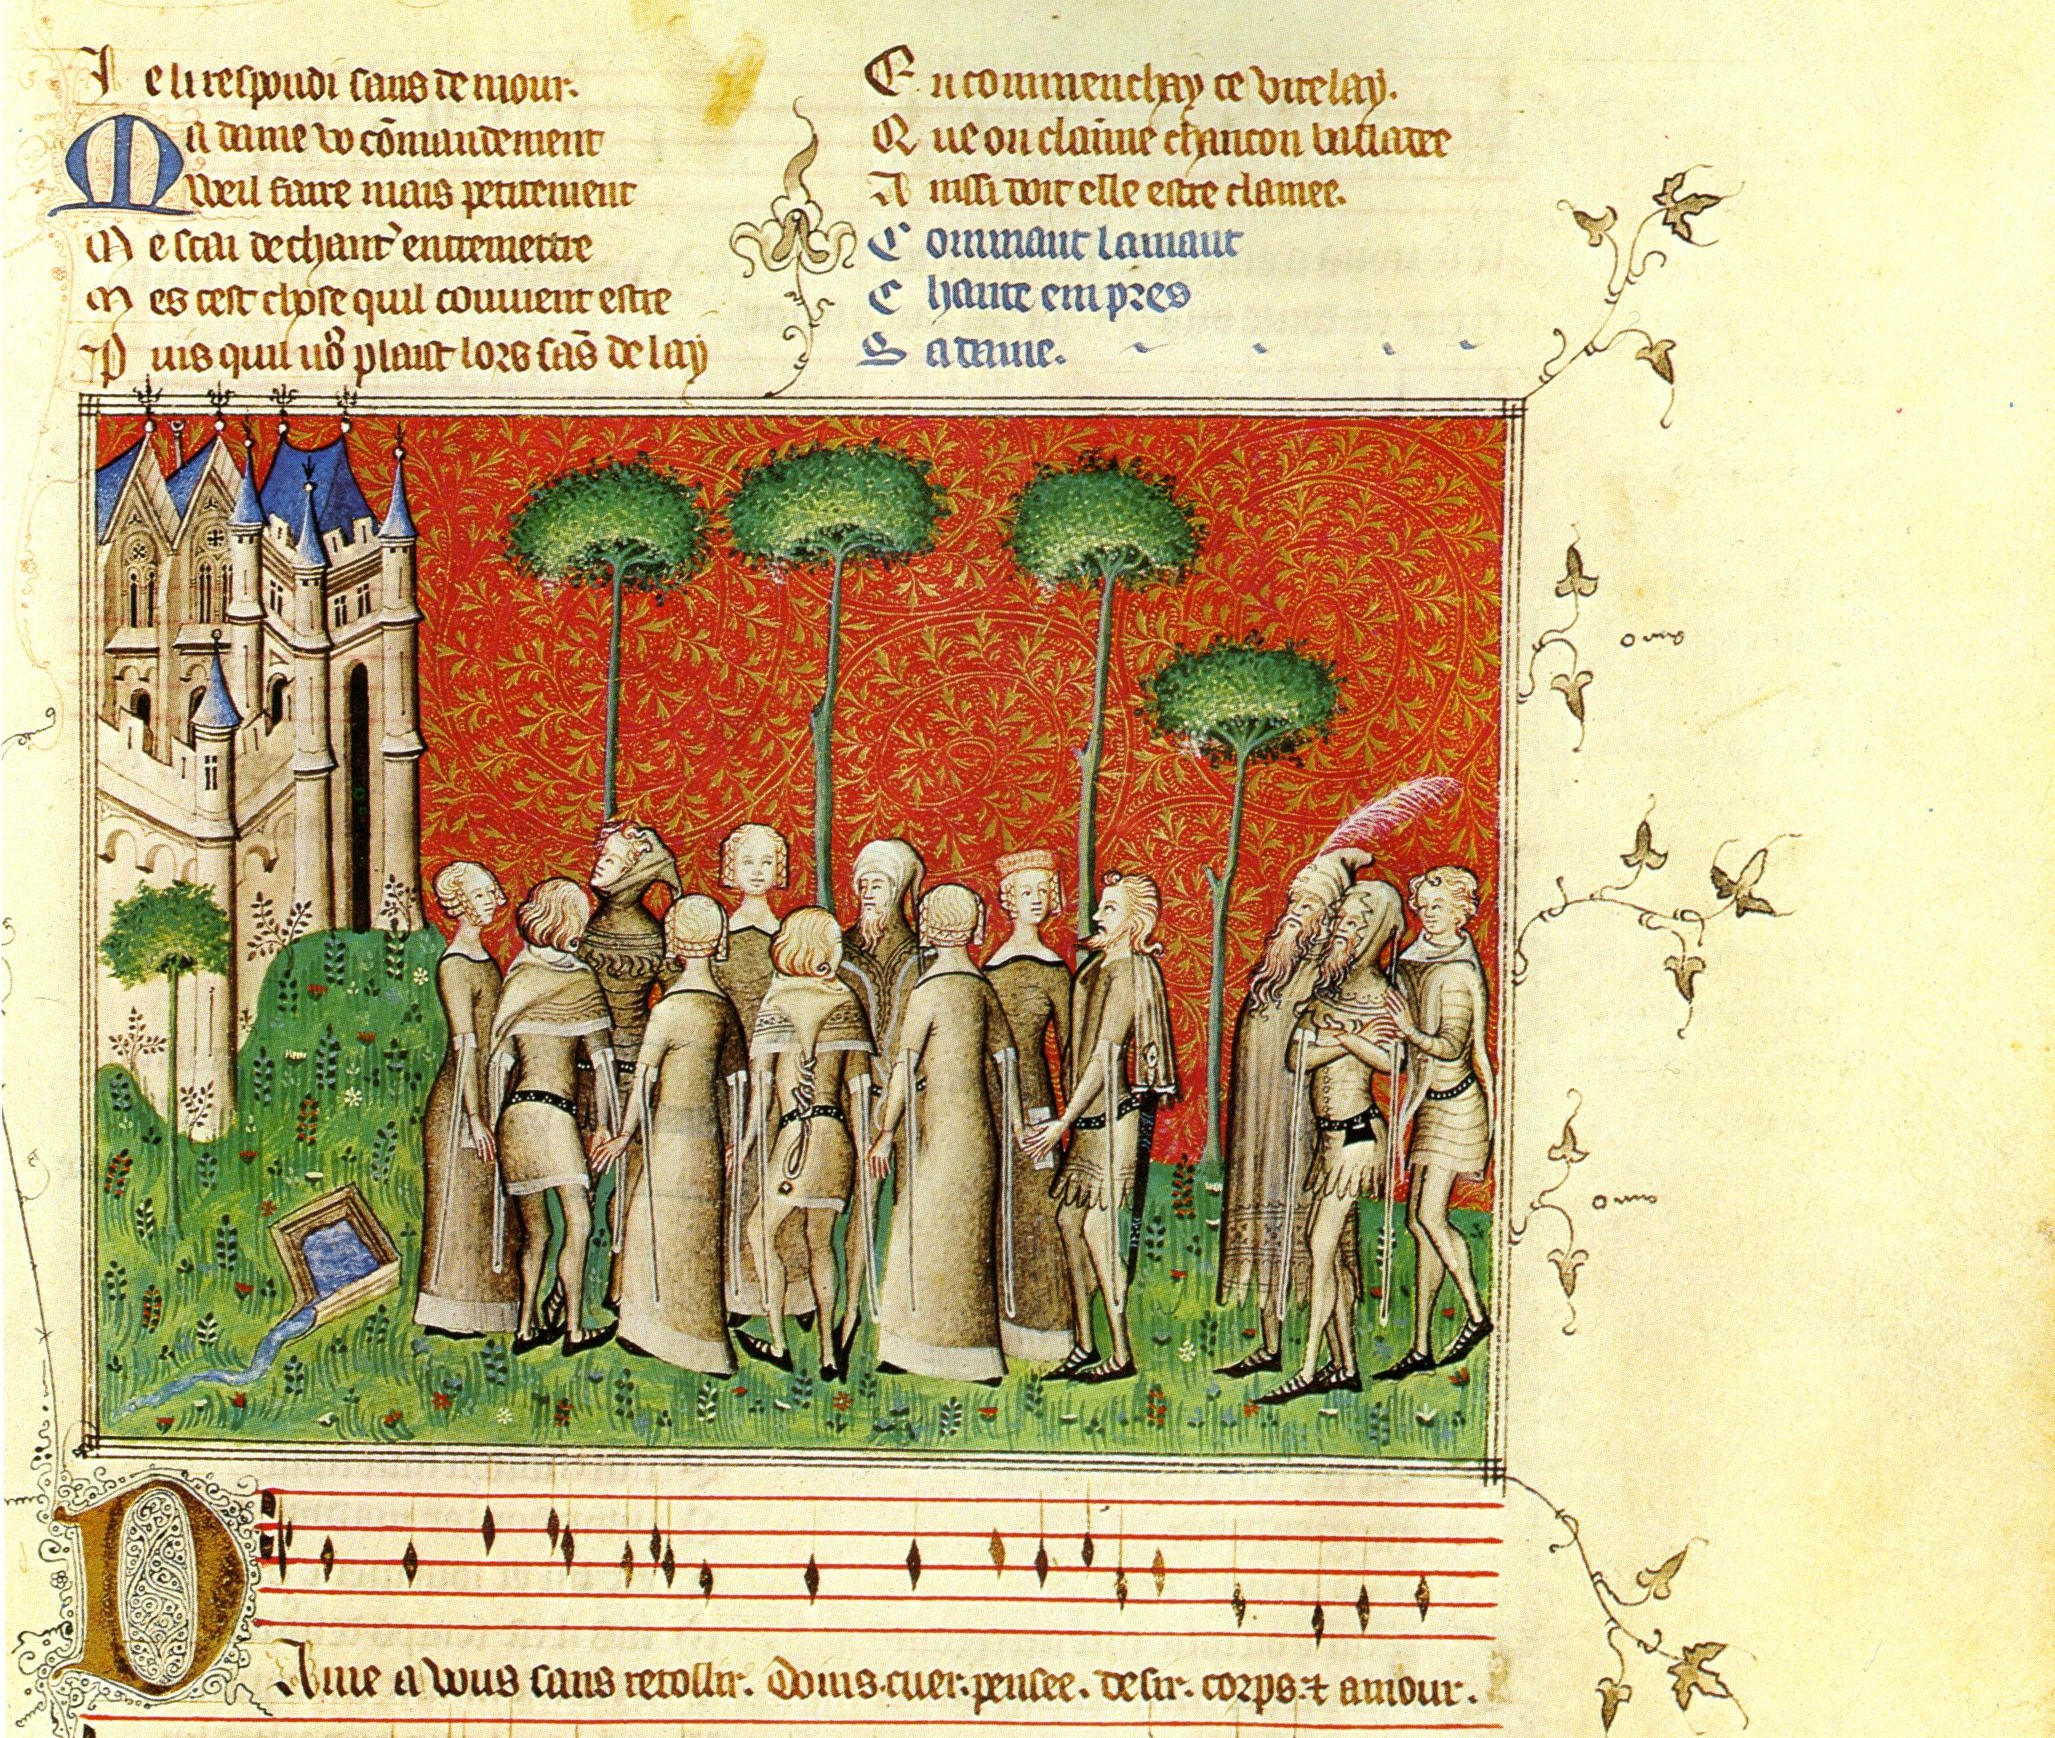 Je li respondi sans demour.
Ma dame vo cōmandement
Weil faire mais petitement
Me scai de chant' entremettre
Mes cest chose quil couuient estre
Puis quil v9 plaist lors sās delay
En commenchay ce virelay.
Que on claimme chancon balladee
Ainssi doit elle estre clamee.
Commant lamant
Chante empres
Sa dame.
Dame a vous sans retollir. Doins. cuer. pensee. desir. corps. ⁊ amour.